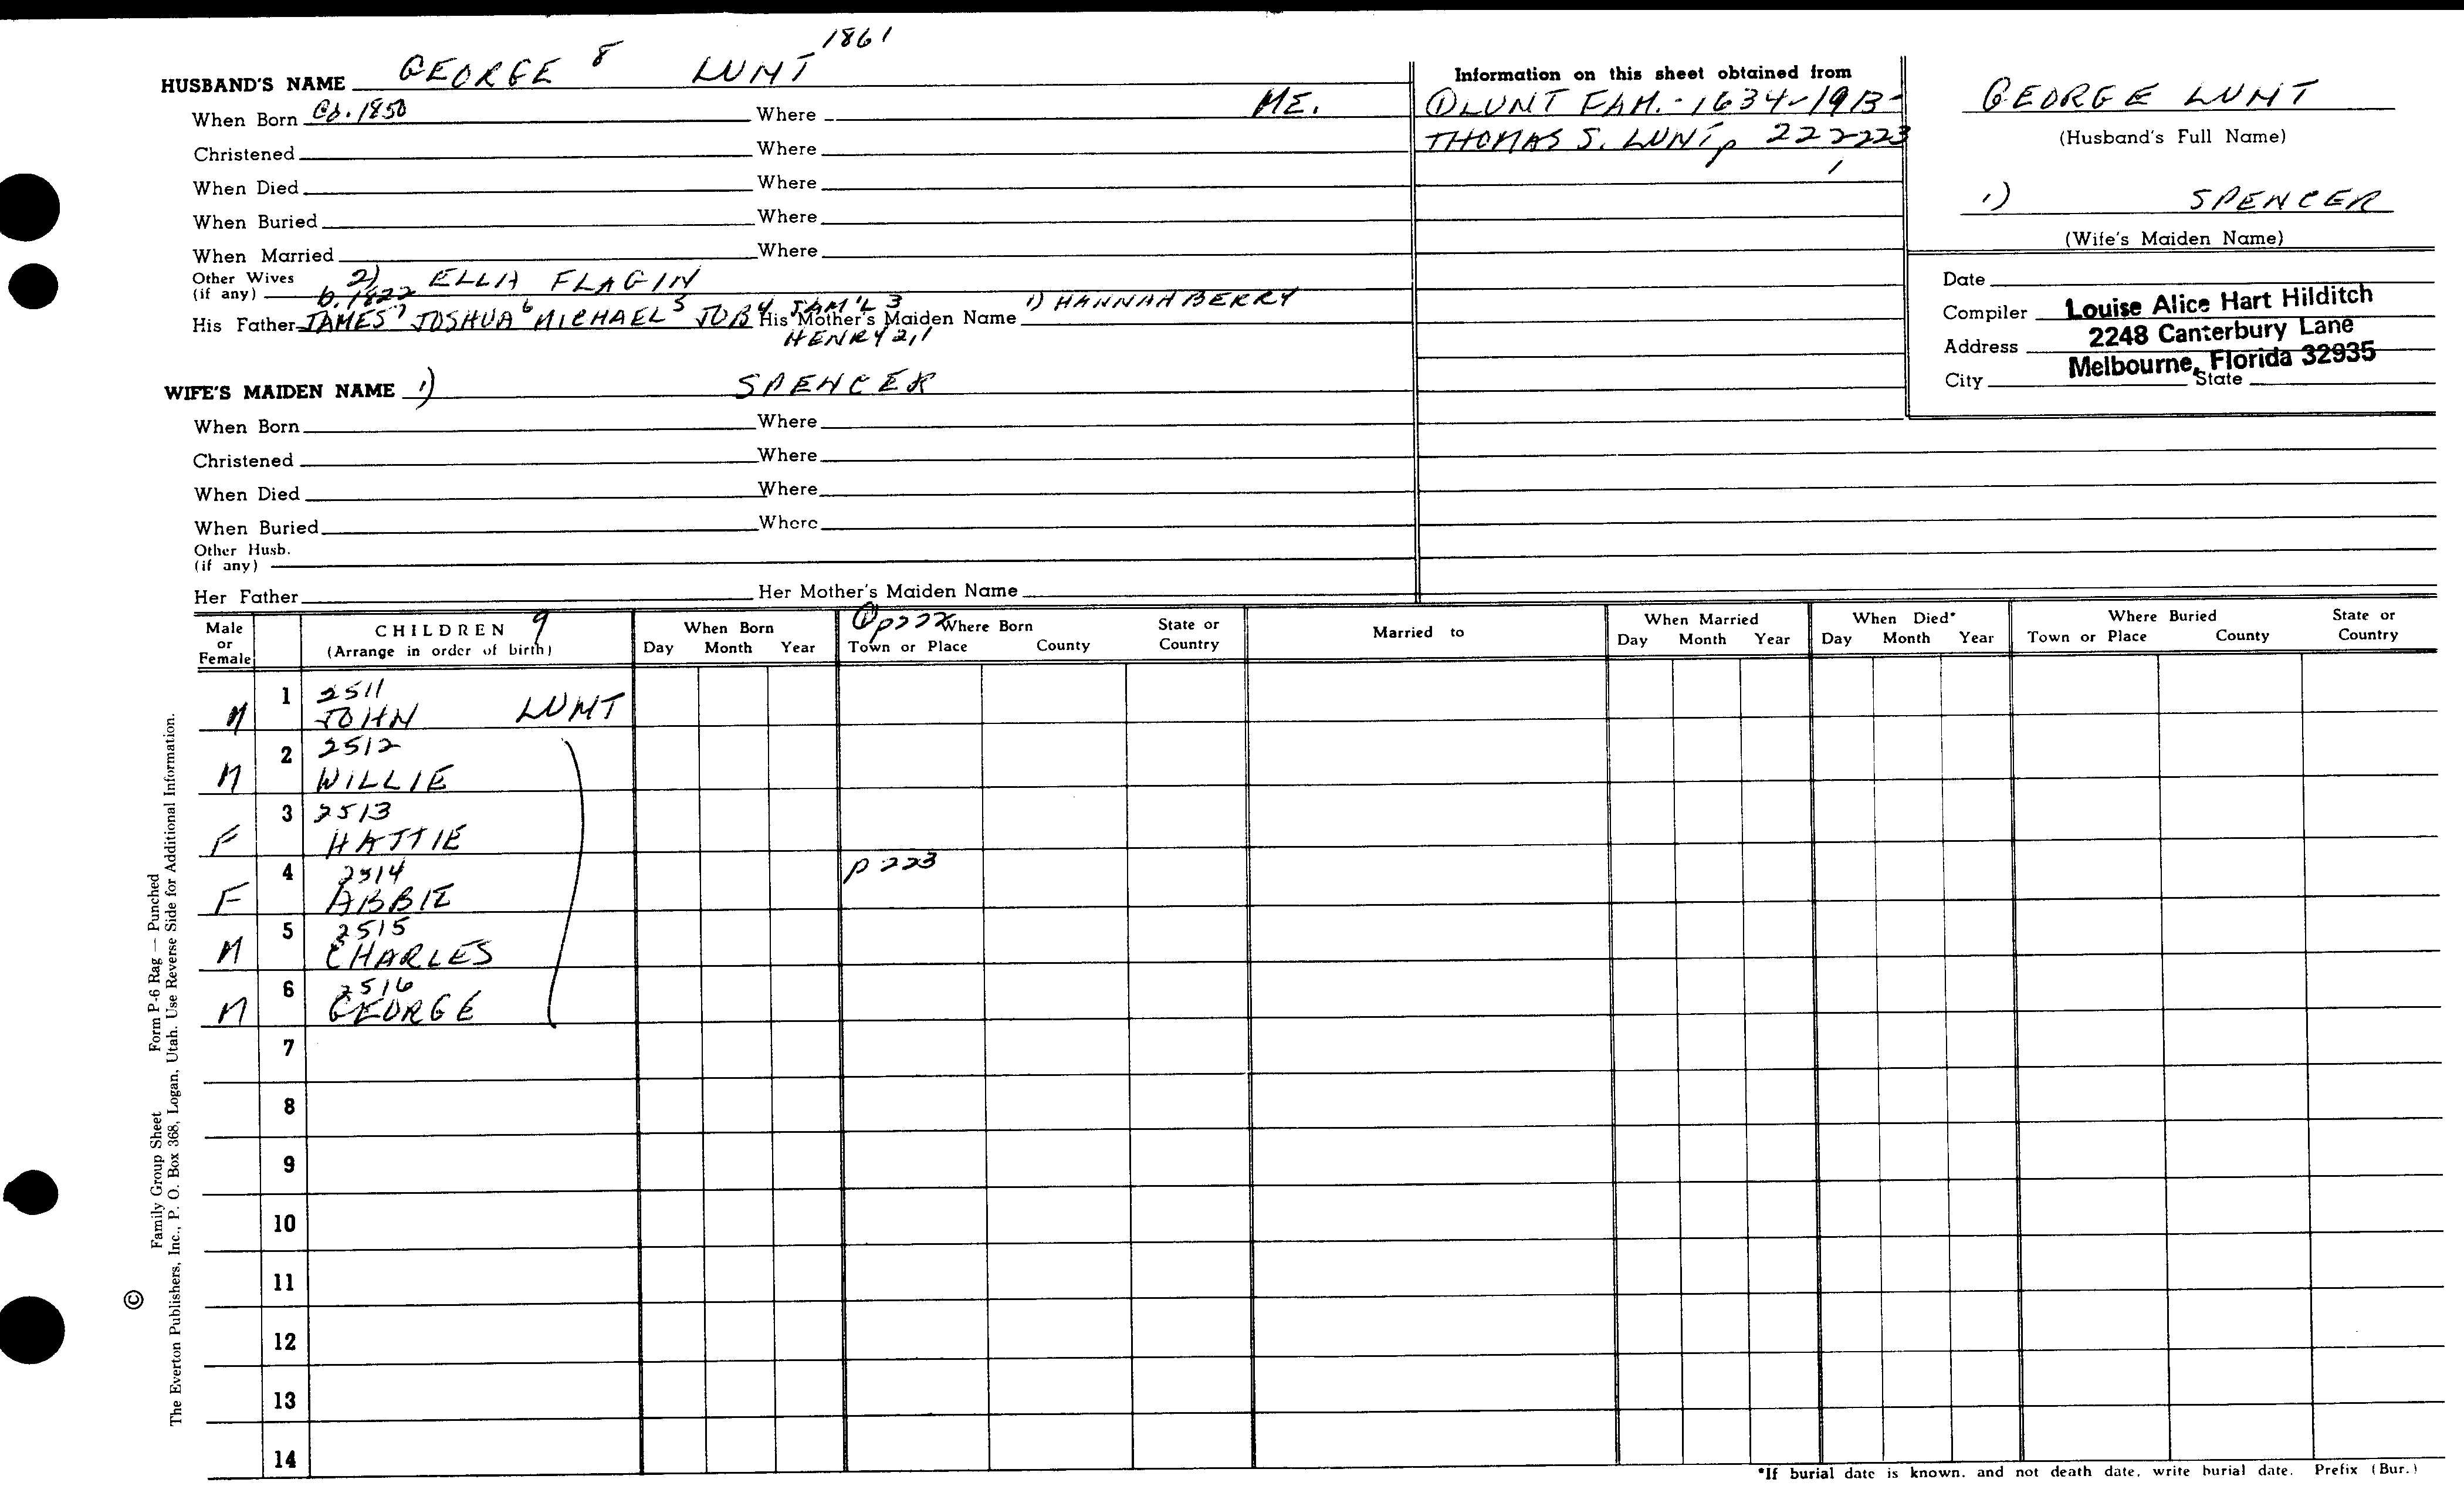 1861
HUSBAND'S NAME GEORGE 8 LUNT
When Born Cb. 1850 Where ME.
Christened Where
When Died Where
When Buried Where
When Married Where
Other Wives (if any) 2) ELLA FLAGIN
b. 1822
His Father JAMES 7 JOSHUA 6 MICHAEL 5 JOB 4 SAM'L 3 HENRY 2,1 His Mother's Maiden Name 1) HANNAH BERRY
WIFE'S MAIDEN NAME 1) SPENCER
When Born Where
Christened Where
When Died Where
When Buried Where
Other Husb. (if any)
Her Father Her Mother's Maiden Name
Information on this sheet obtained from
① LUNT FAM. - 1634-1913 -
THOMAS S. LUNT, p 222-223
GEORGE LUNT
(Husband's Full Name)
1) SPENCER
(Wife's Maiden Name)
Date
Compiler Louise Alice Hart Hilditch
Address 2248 Canterbury Lane
Melbourne, Florida 32935
City State
Male or Female
CHILDREN 9
(Arrange in order of birth)
When Born
Day Month Year
① p222 Where Born
Town or Place County State or Country
Married to
When Married
Day Month Year
When Died*
Day Month Year
Where Buried
Town or Place County State or Country
1 2511
M JOHN LUNT
2 2512
M WILLIE
3 2513
F HATTIE
4 2514 p 223
F ABBIE
5 2515
M CHARLES
6 2516
M GEORGE
7
8
9
10
11
12
13
14
*If burial date is known, and not death date, write burial date. Prefix (Bur.)
©
Family Group Sheet Form P-6 Rag — Punched
The Everton Publishers, Inc., P. O. Box 368, Logan, Utah. Use Reverse Side for Additional Information.